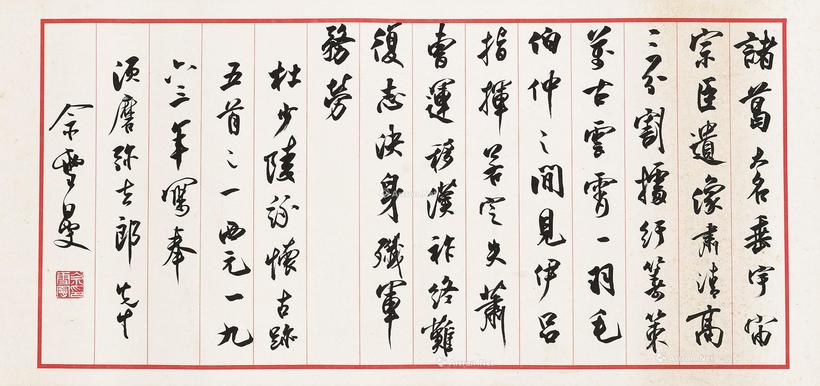 諸葛大名垂宇宙
宗臣遺像肅清高
三分割據紆籌策
萬古雲霄一羽毛
伯仲之間見伊呂
指揮若定失蕭
曹運移漢祚終難
復志決身殲軍
務勞
杜少陵詠懷古跡
五首之一西元一九
六三年寫奉
須磨弥吉郎先生
余雪曼